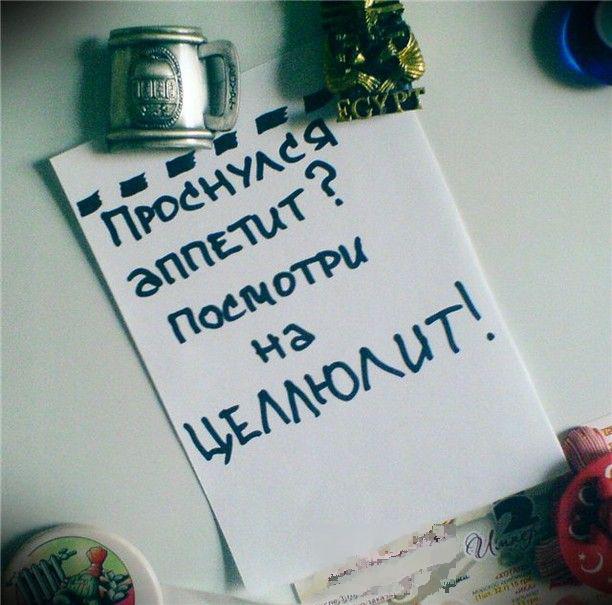 EGYPT
Проснулся
аппетит?
посмотри
на
ЦЕЛЛЮЛИТ!
2